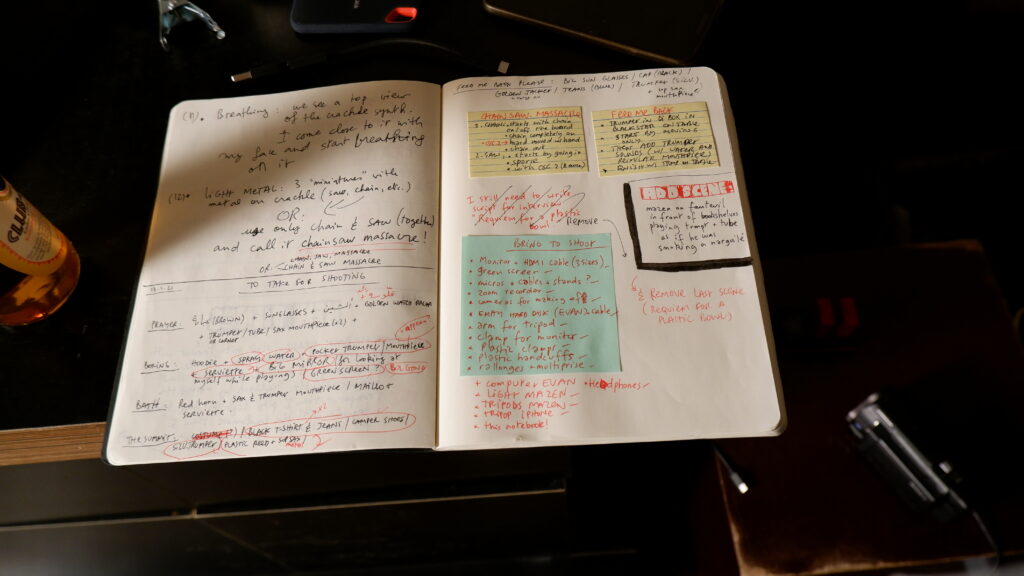 (11). Breathing : we see a top view
of the crackle synth.
I come close to it with
my face and start breathing
on it
(12). LIGHT METAL: 3 "miniatures" with
metal on crackle (saw, chain, etc.)
OR:
use only chain & SAW (together)
and call it chainsaw massacre!
CHAIN, SAW, MASSACRE
OR: CHAIN & SAW MASSACRE
TO TAKE FOR SHOOTING
PRAYER: (BROWN) + SUNGLASSES + + GOLDEN WATER
+ TRUMPET/TUBE/SAX MOUTHPIECE (x2) +
OR CORNET
BORING: Hoodie + SPRAY WATER + POCKET TRUMPET/MOUTHPIECE
+ SERVIETTE + BIG MIRROR (for looking at
myself while playing) / GREEN SCREEN? / BIG GONG
BATH: Red horn + SAX & TRUMPET MOUTHPIECE / MAILLOT
SERVIETTE.
THE SUMMIT: / BLACK T-SHIRT & JEANS / CAMPER SHOES /
TRUMPET / PLASTIC REED +
metal
FEED ME BACK PLEASE: BIG SUN GLASSES / CAP (BLACK) /
GOLDEN JACKET / JEANS (BLUE) / TRUMPET (SILV.)
mouthpiece
CHAIN SAW MASSACRE
1. CHAIN: starts with chain
on/off the board
+ chain completely on
→ OSC 2 → hard moved w/hand
+ chain out
2. SAW: + starts by going in
+ with OSC 2
FEED ME BACK
• TRUMPET IN
BLACKSTAR ON TABLE
START BY MOVING
ONLY
• THEN ADD TRUMPET
SOUNDS (W/ WATER AND
REGULAR MOUTHPIECE)
• FINISH W/ ITEM ON TABLE
I still need to write
script for interview
"Requiem for a plastic
bowl" REMOVE
ADD SCENE:
mazen on fauteuil
in front of bookshelves
playing trumpt + tube
as if he was
smoking a narguilé
& REMOVE LAST SCENE
(REQUIEM FOR A
PLASTIC BOWL)
BRING TO SHOOT
• Monitor + HDMI cable (3 sizes)
• green screen
• micros + cables + stands?
• zoom recorder
• cameras for making of
• EMPTY HARD DISK (EVAN) + cable
• arm for tripod
• clamp for monitor
• Plastic clamps
• Plastic handcuffs
• rallonges + multiprise
+ computer EVAN + HeaDphones
• LIGHT MAZEN
• TRIPODS MAZEN
• tripod iphone
• this notebook!